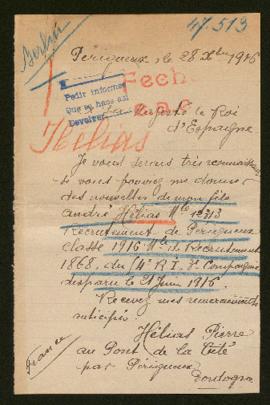 47.513
Berlin
Périgueux, le 28 Xbre 1916
Fech
Pedir informes
Que se haga así
Devolver
Sa Majesté le Roi
d'Espagne
Hélias
Je vous serais très reconnaissant
si vous pouviez me donner
des nouvelles de mon fils
andré Hélias Mle
Recrutement de Périgueux
classe 1916 Mle de Recrutement
1868, du R.I. Compagnie
disparu le 21 Juin 1916.
Recevez mes remerciements
anticipés.
Hélias Pierre
au Pont de la Cité
par Périgueux
Dordogne
France